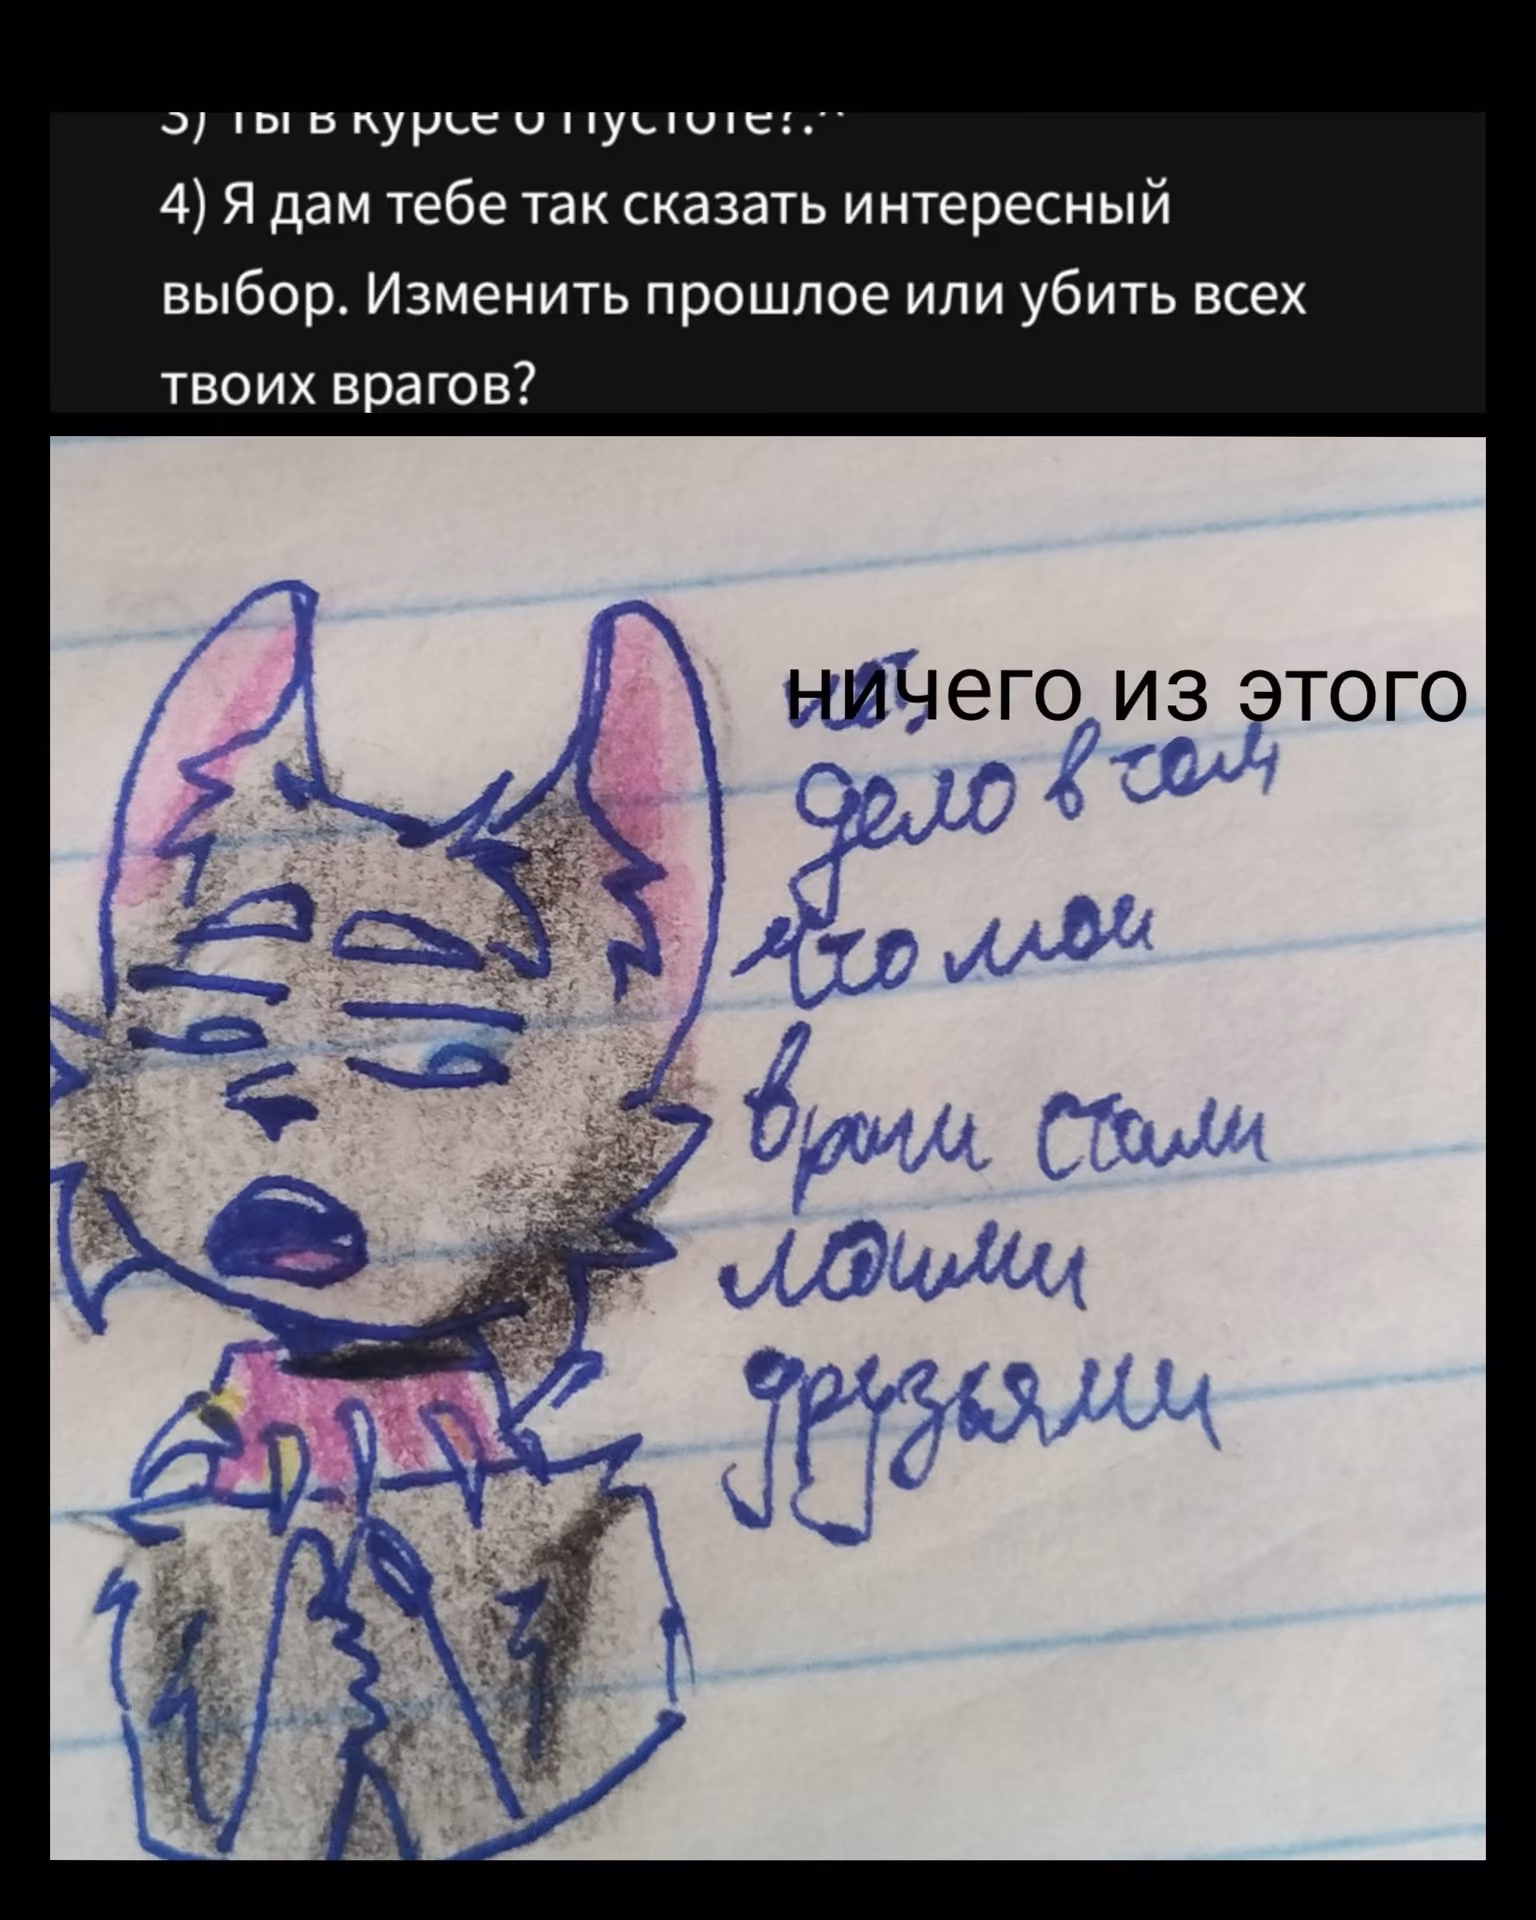 3) Ты в курсе о Пустоте?.^
4) Я дам тебе так сказать интересный
выбор. Изменить прошлое или убить всех
твоих врагов?
ничего из этого
дело в том
что мои
враги стали
моими
друзьями